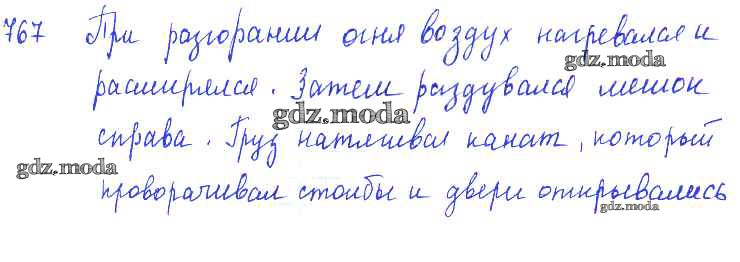 767 При разгорании огня воздух нагревался и
gdz.moda
расширялся. Затем раздувался мешок
gdz.moda
справа. Груз натягивал канат, который
gdz.moda
проворачивал столбы и двери открывались
gdz.moda